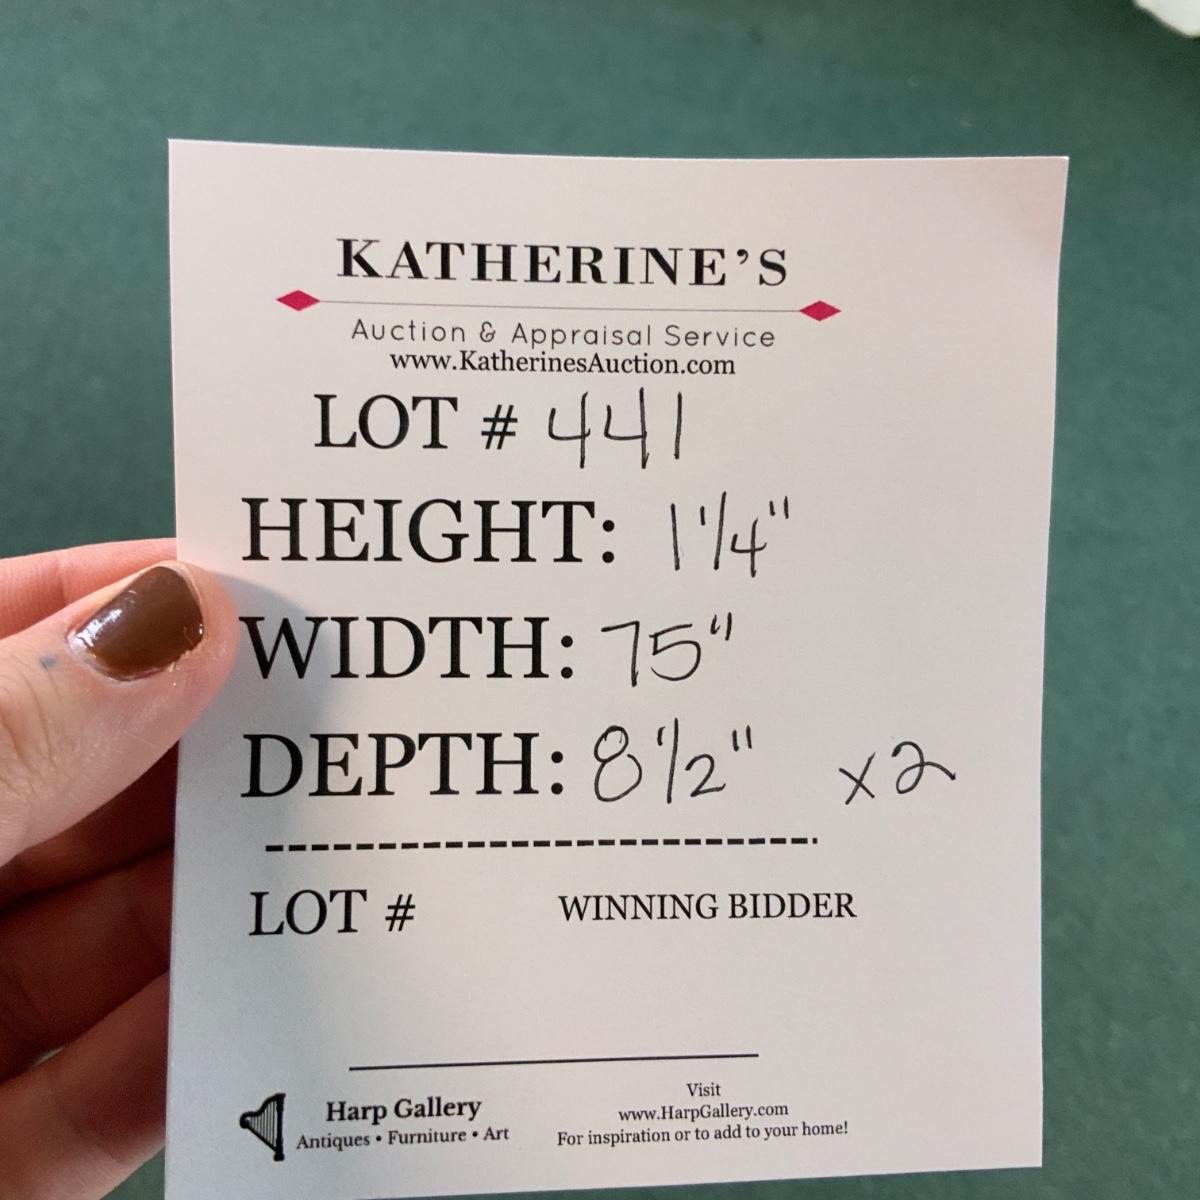 KATHERINE'S
Auction & Appraisal Service
www.KatherinesAuction.com
LOT # 441
HEIGHT: 1 1/4"
WIDTH: 75"
DEPTH: 8 1/2" x2
LOT # WINNING BIDDER
Harp Gallery
Antiques • Furniture • Art
Visit
www.HarpGallery.com
For inspiration or to add to your home!